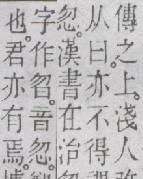 傳之上。淺人
从曰。亦不得
忽。漢書在治
字作曶。音忽。
也。君亦有焉。